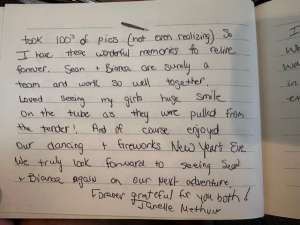 took 100's of pics (not even realizing) so
I have these wonderful memories to relive
forever. Sean + Bianca are surely a
team and work so well together.
Loved seeing my girls huge smile
on the tube as they were pulled from
the tender! And of course enjoyed
our dancing + fireworks New Years Eve.
We truly look forward to seeing Sean
+ Bianca again on our next adventure.
Forever grateful for you both!
Janelle